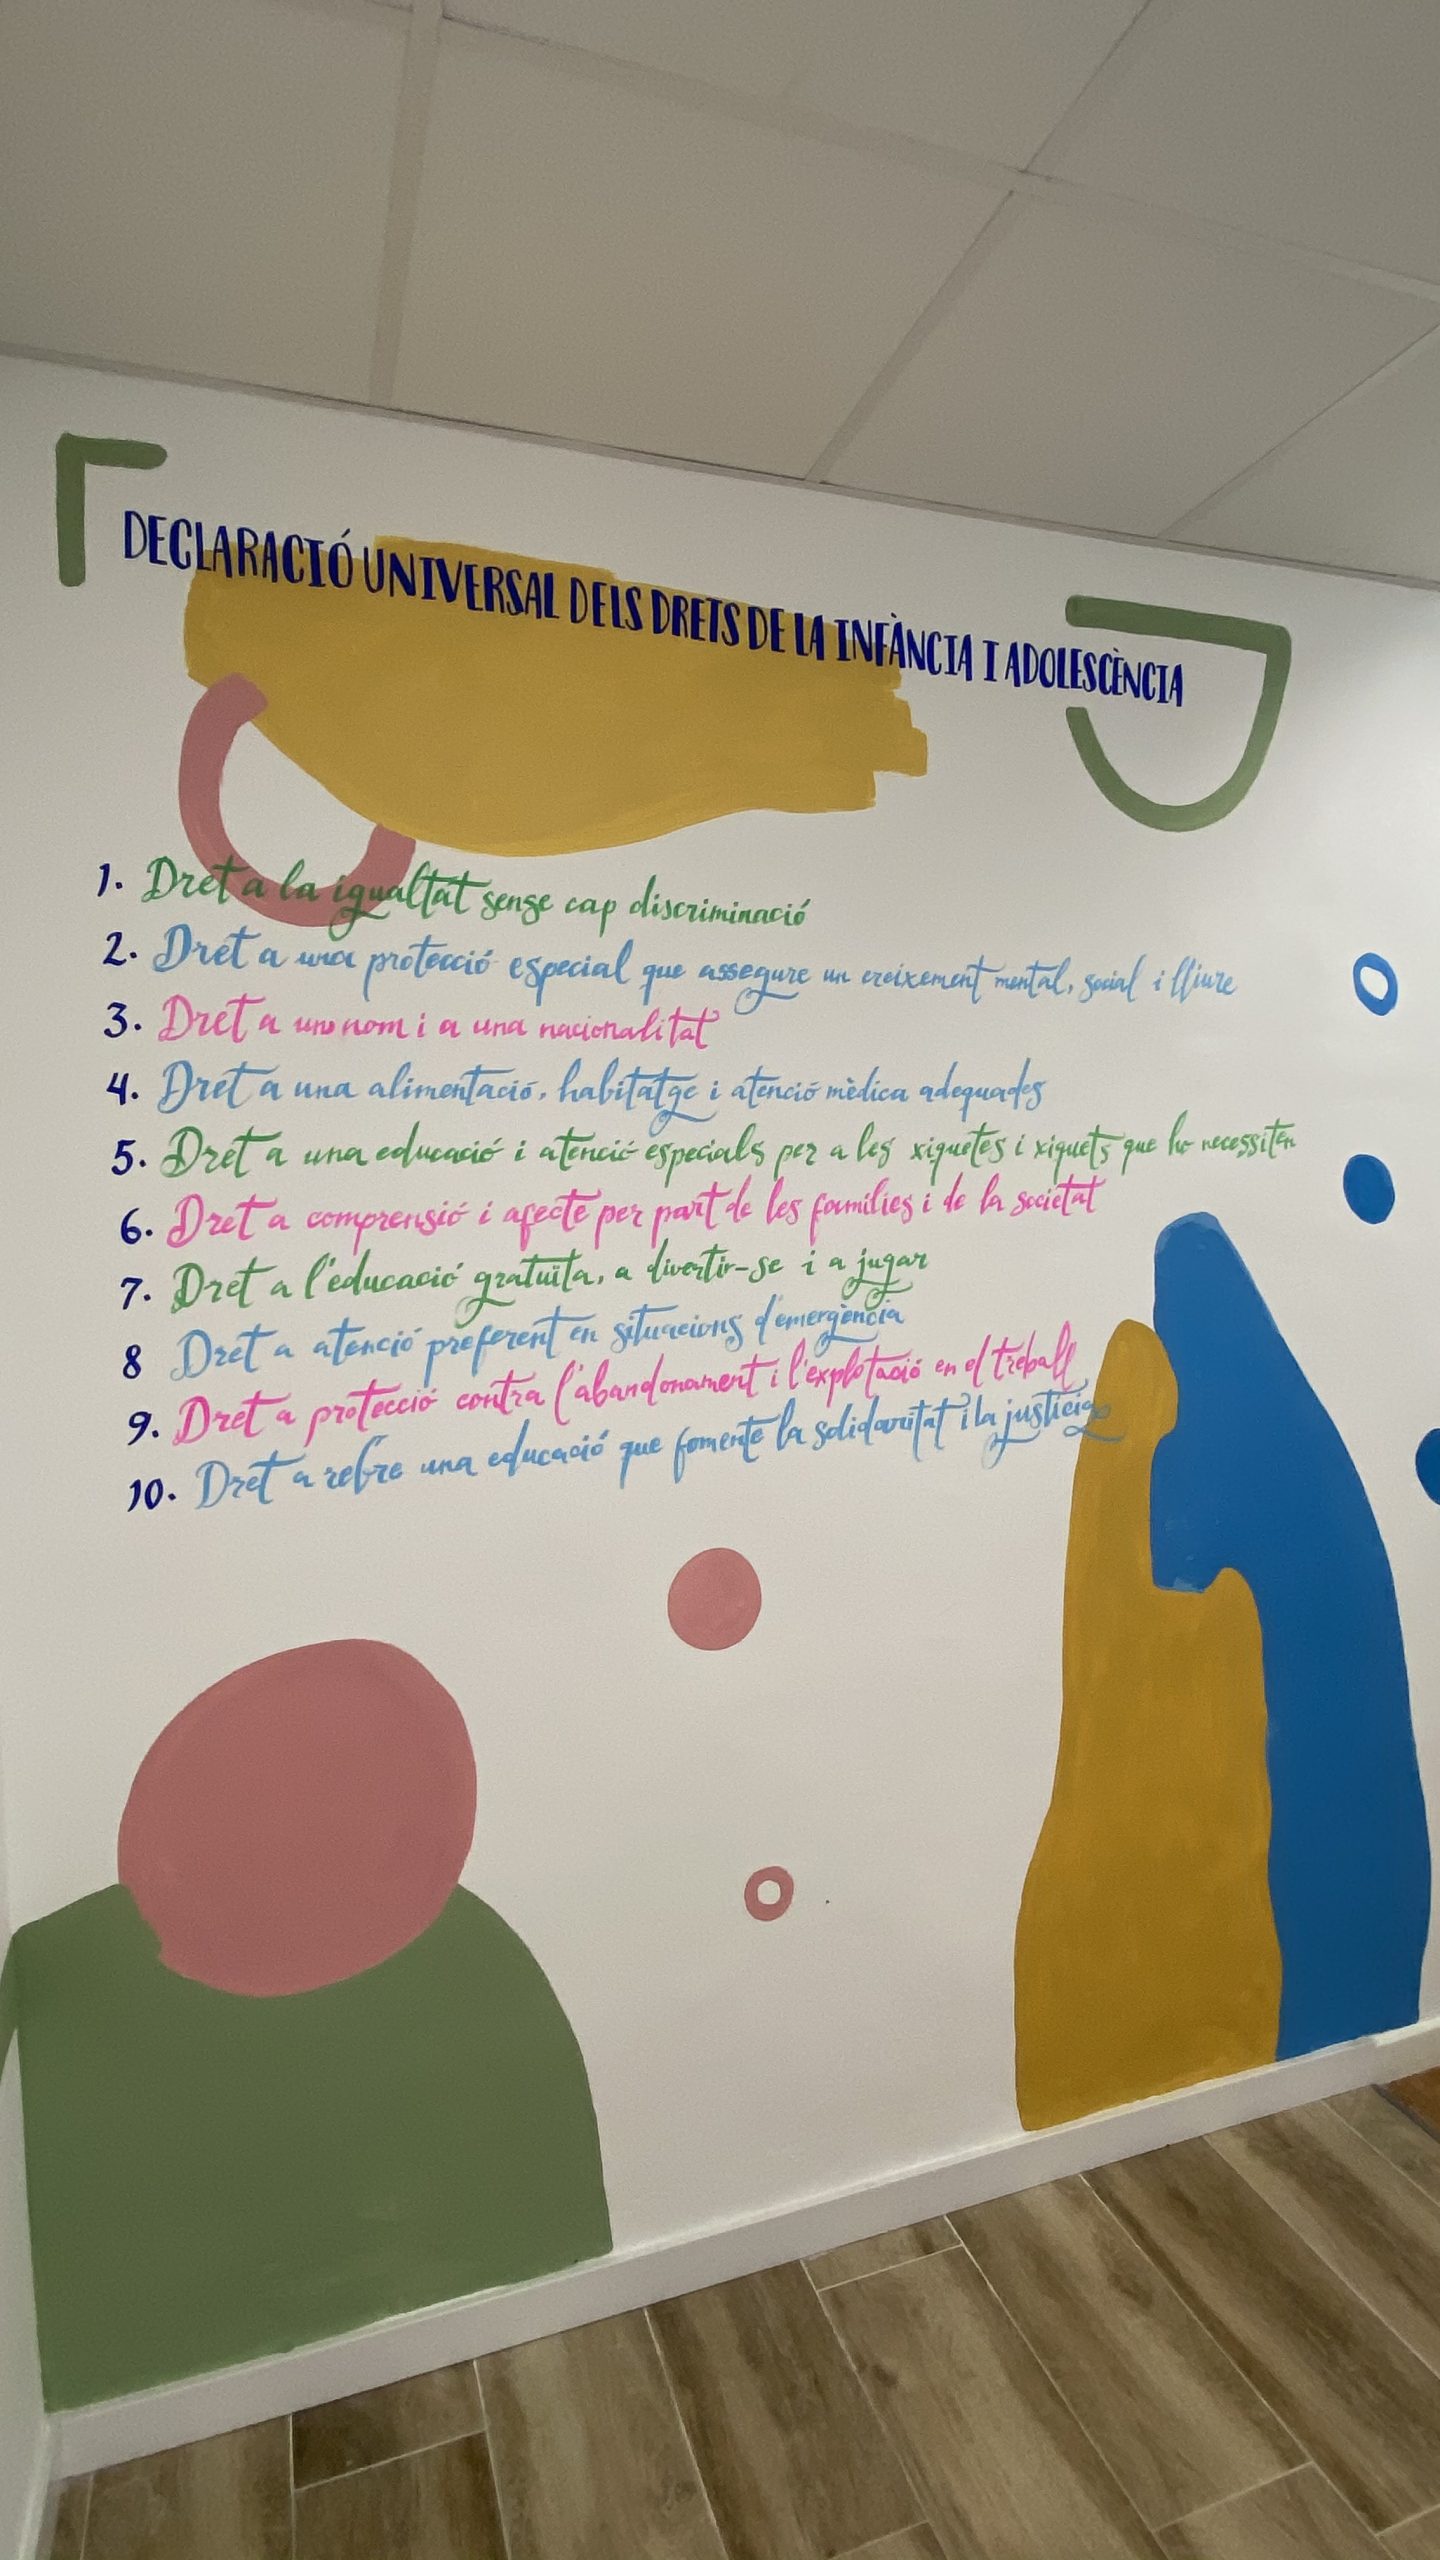 DECLARACIÓ UNIVERSAL DELS DRETS DE LA INFÀNCIA I ADOLESCÈNCIA
1. Dret a la igualtat sense cap discriminació
2. Dret a una protecció especial que assegure un creixement mental, social i lliure
3. Dret a un nom i a una nacionalitat
4. Dret a una alimentació, habitatge i atenció mèdica adequades
5. Dret a una educació i atenció especials per a les xiquetes i xiquets que ho necessiten
6. Dret a comprensió i afecte per part de les famílies i de la societat
7. Dret a l'educació gratuïta, a divertir-se i a jugar
8 Dret a atenció preferent en situacions d'emergència
9. Dret a protecció contra l'abandonament i l'explotació en el treball
10. Dret a rebre una educació que fomente la solidaritat i la justícia